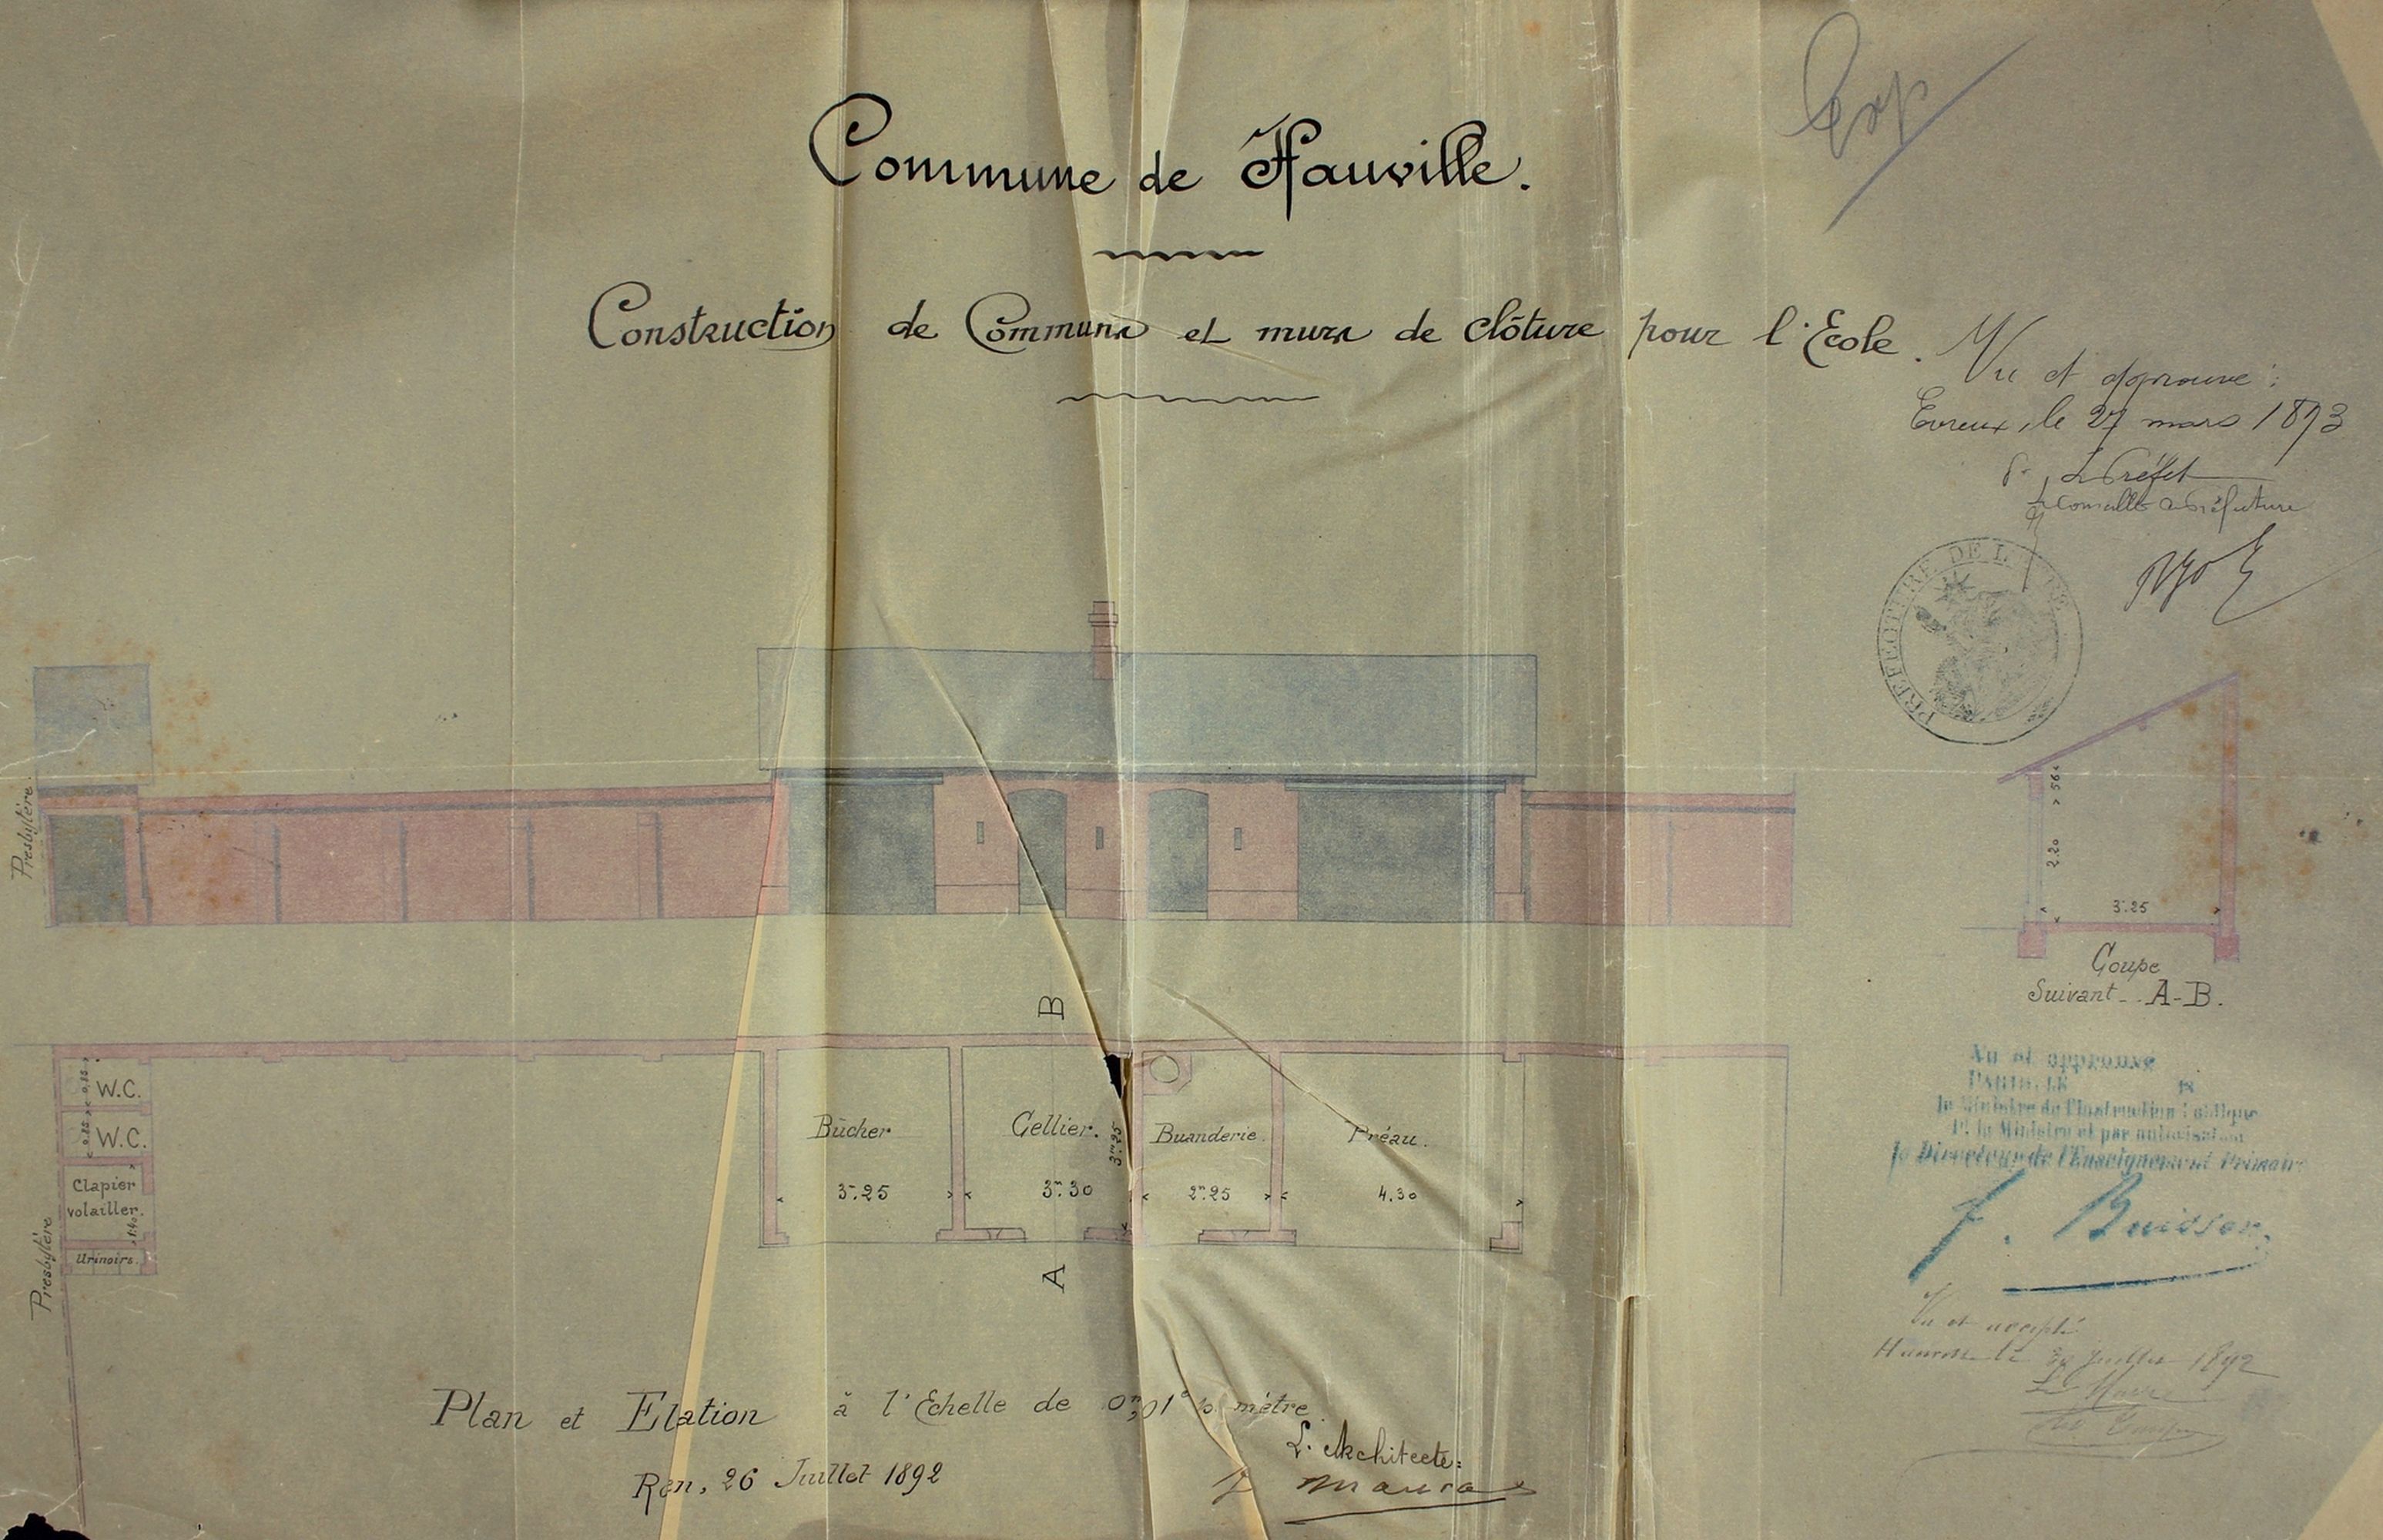 Exp
Commune de Hauville.
Construction de Communs et murs de clôture pour l'Ecole.
Vu et approuvé :
Evreux, le 27 mars 1893
Pr Le Préfet
PREFECTURE DE L'EURE
Presbytère.
2.20
3m.25
Coupe
Suivant A-B.
B
W.C.
W.C.
Clapier
volailler.
Urinoirs.
Presbytère
Bûcher
Cellier.
Buanderie.
Préau.
3m.25
3m.25
3m.30
2m.25
4.30
A
Vu et approuvé
PARIS, LE 18
le Ministre de l'Instruction Publique
Pr. le Ministre et par autorisation
le Directeur de l'Enseignement Primaire
F. Buisson
Vu et accepté
Hauville le Juillet 1892
Le Maire
Plan et Elation à l'Echelle de 0m,01c % mètre
26 Juillet 1892
L'Architecte: